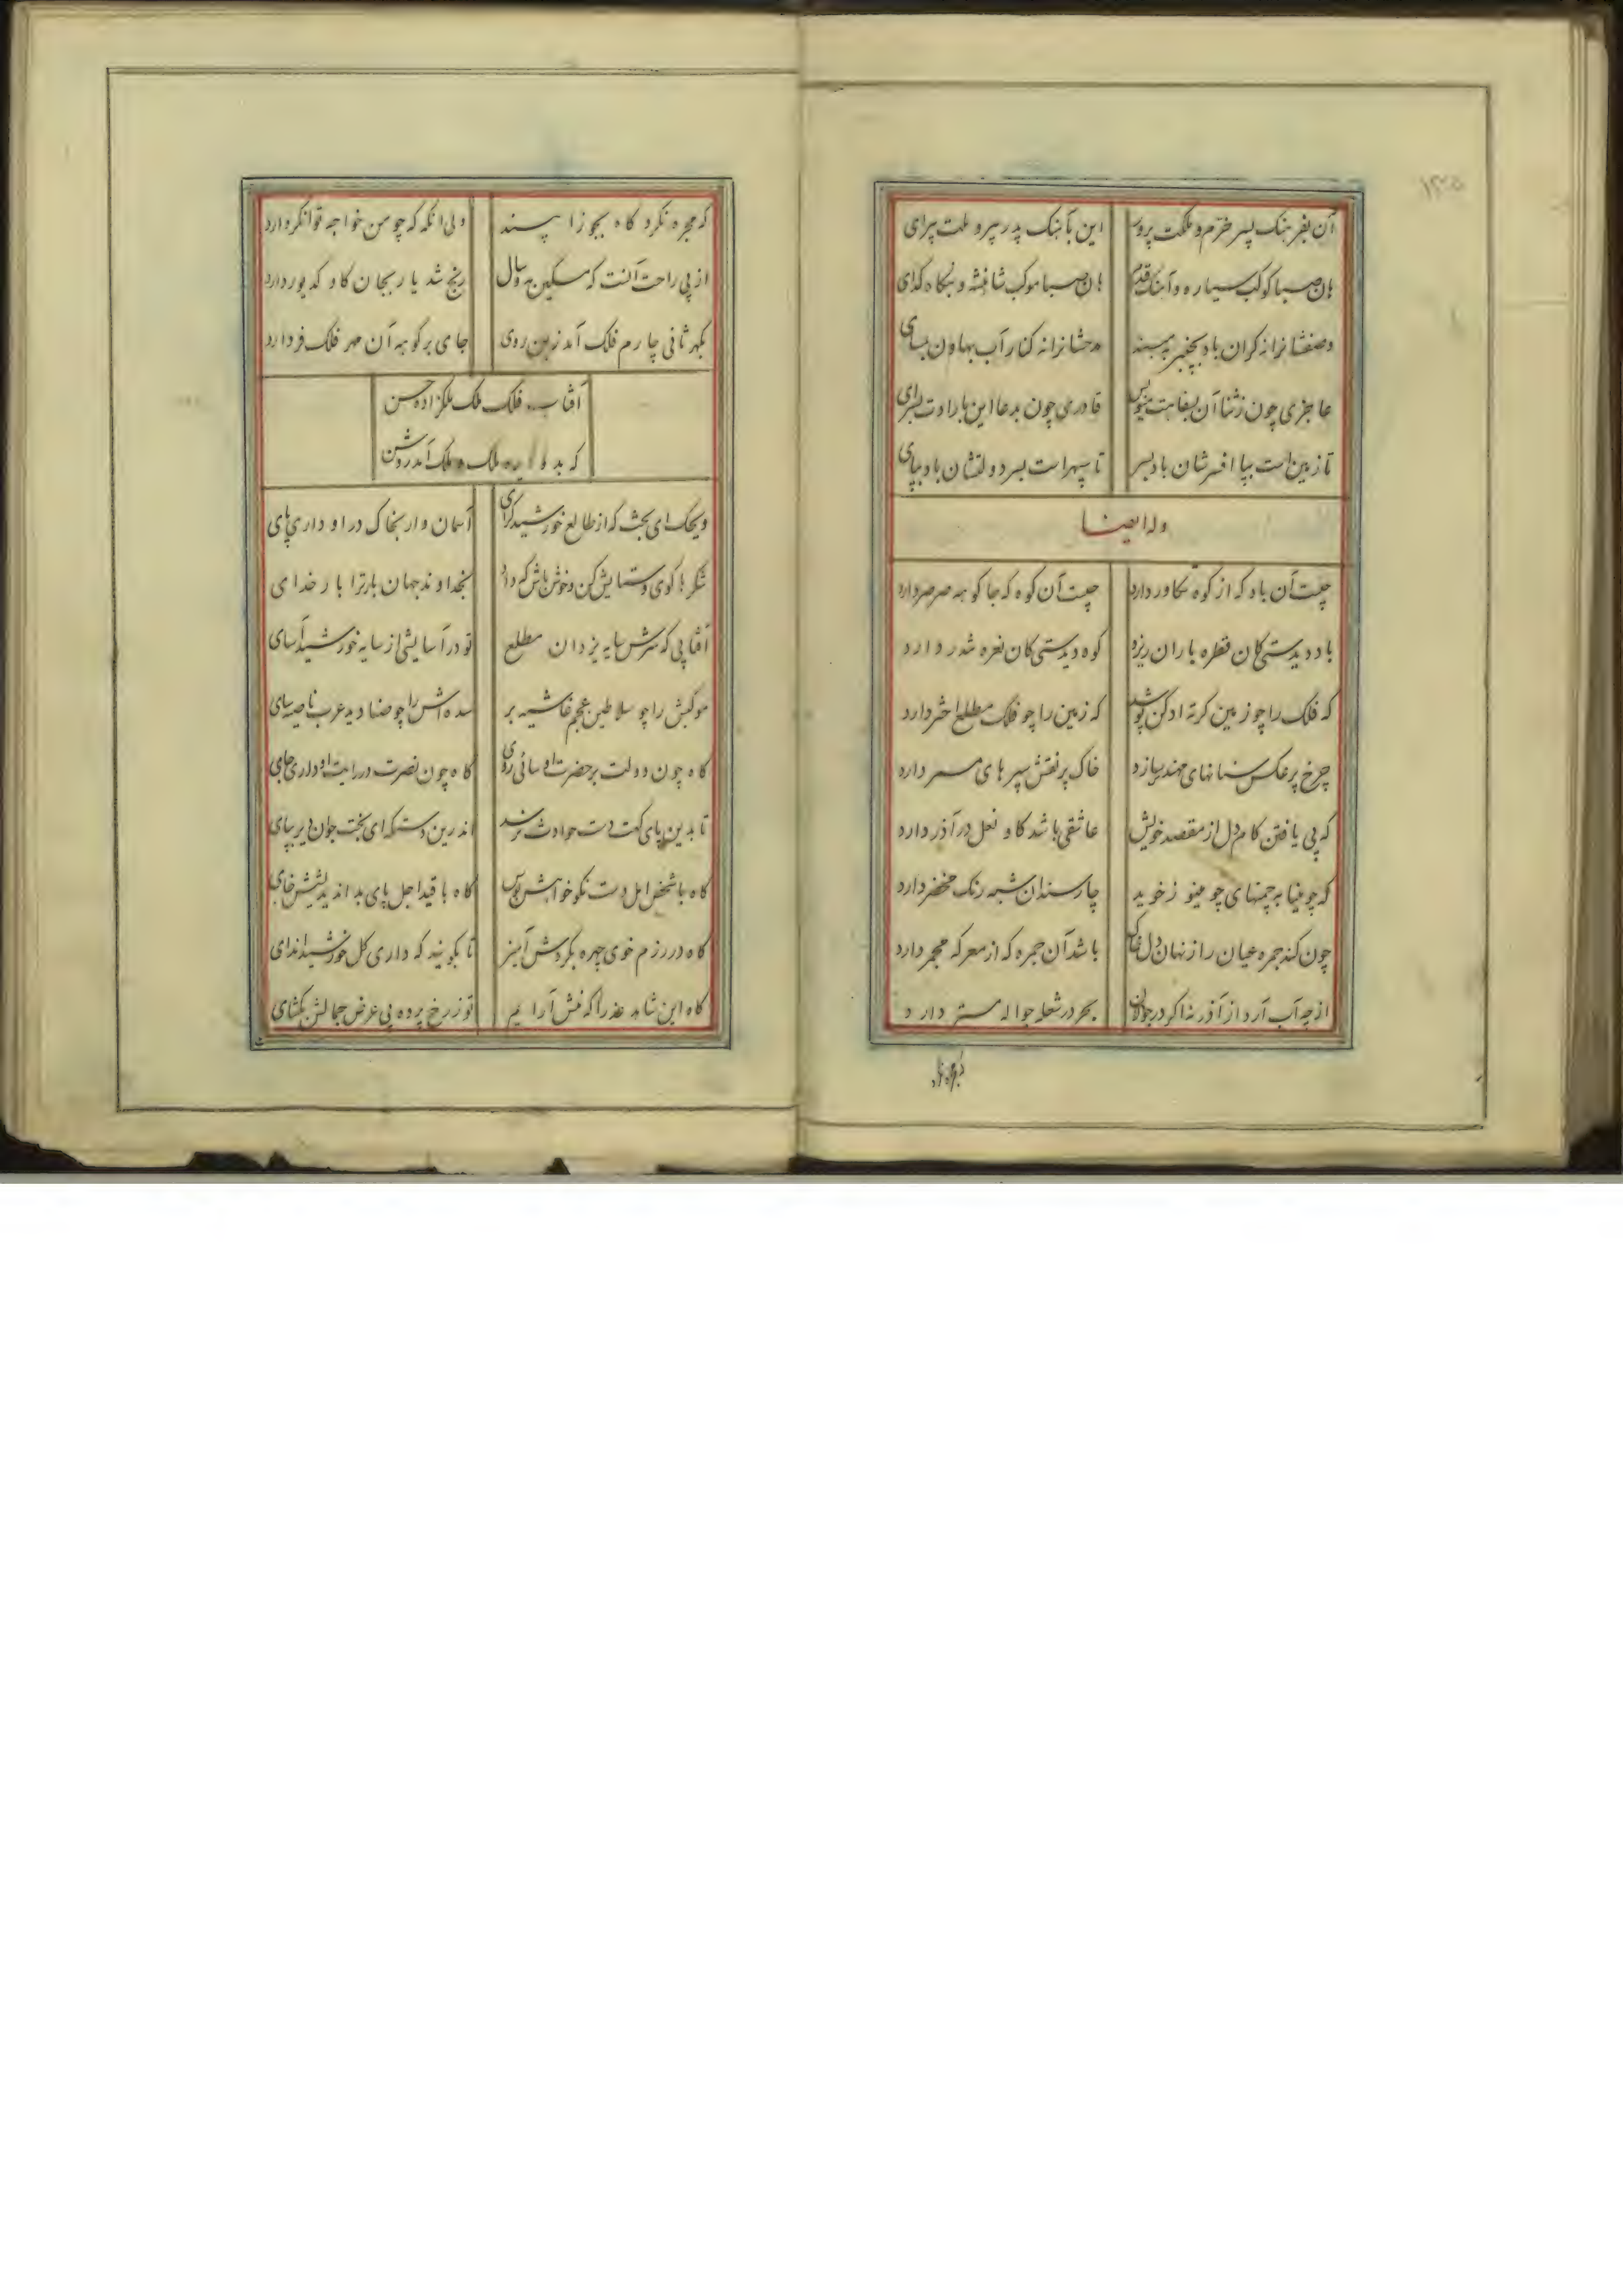 ۱۲۵
آن بفرهنک پسر خرم و مملکت پرور
این بآهنک پدر پیرو ملت پیرای
هان صبا کوکب سیاره و
هان صبا موکب شاهنشه و بنکاه کدای
کران باد بچنبر
مدحشانرانه کنار آب بهاون بسای
عاجزی چون زثنا آن بفقاهت
قادری چون بدعا این بارادت بسرای
تا زمین است بپا افسرشان باد بسر
تا سپهر است بسر دولتشان باد بپای
وله ایضا
چیست آن باد که از کوه تکاور دارد
چیست آن کوه که جا کوهه صرصر دارد
باد دیدستی کان قطره باران ریزد
کوه دیدستی کان نعره تندر دارد
که فلک را چو زمین کرته ادکن پوشد
که زمین را چو فلک مطلع اختر دارد
چرخ پر عکس سنانهای مهند سازد
خاک پر نقش سپرهای مسمر دارد
که پی یافتن کام دل از مقصد خویش
عاشقی باشد کاو نعل در آذر دارد
که چو مینا به چمنهای چو مینو ز خوید
چار سندان شبه رنک مخضر دارد
چون کند جمره عیان راز نهان دل خاک
باشد آن جمره که از معرکه مجمر دارد
از چه آب آرد از آذر نه اکر در جولان
بحر در شعله جواله مستر دارد
که مجره نکرد کاه بجوزا سپند
ولی انکه که چو من خواجه توانکر دارد
از پی راحت آنست که مسکین همه سال
رنج شد یار بجان کاو کدیور دارد
بکهر ثانی چارم فلک آمد زمین روی
جای بر کوهه آن مهر فلک فر دارد
آفتاب فلک ملک ملکزاده حسن
که بد و ملک آمد روشن
ویحک ای بخت که از طالع خورشید کرای
آسمان وار بخاک در او داری پای
شکرها کوی و ستایش کن و خوش باش که داد
بخداوند جهان بار ترا بار خدای
آفتابی که سرش سایه یزدان مطلع
تو در آسایشی از سایه خورشید آسای
موکبش را چو سلاطین عجم غاشیه بر
سده اش را چو صنادید عرب ناصیه سای
کاه چون دولت بر حضرت او سائی روی
کاه چون نصرت در رایت او داری جای
تا بدین پای کت دست حوادث نرسد
اندرین دستکه ای بخت جوان دیر بپای
کاه با شخص امل دست نکوخواهش بوس
کاه با قید اجل پای بد اندیشش خای
کاه در رزم خوی چهره بکردش آمیز
تا بکویند که داری کل خورشید اندای
کاه این شاهد عذرا که منش آرایم
تو ز رخ پرده پی عرض جمالش بکشای